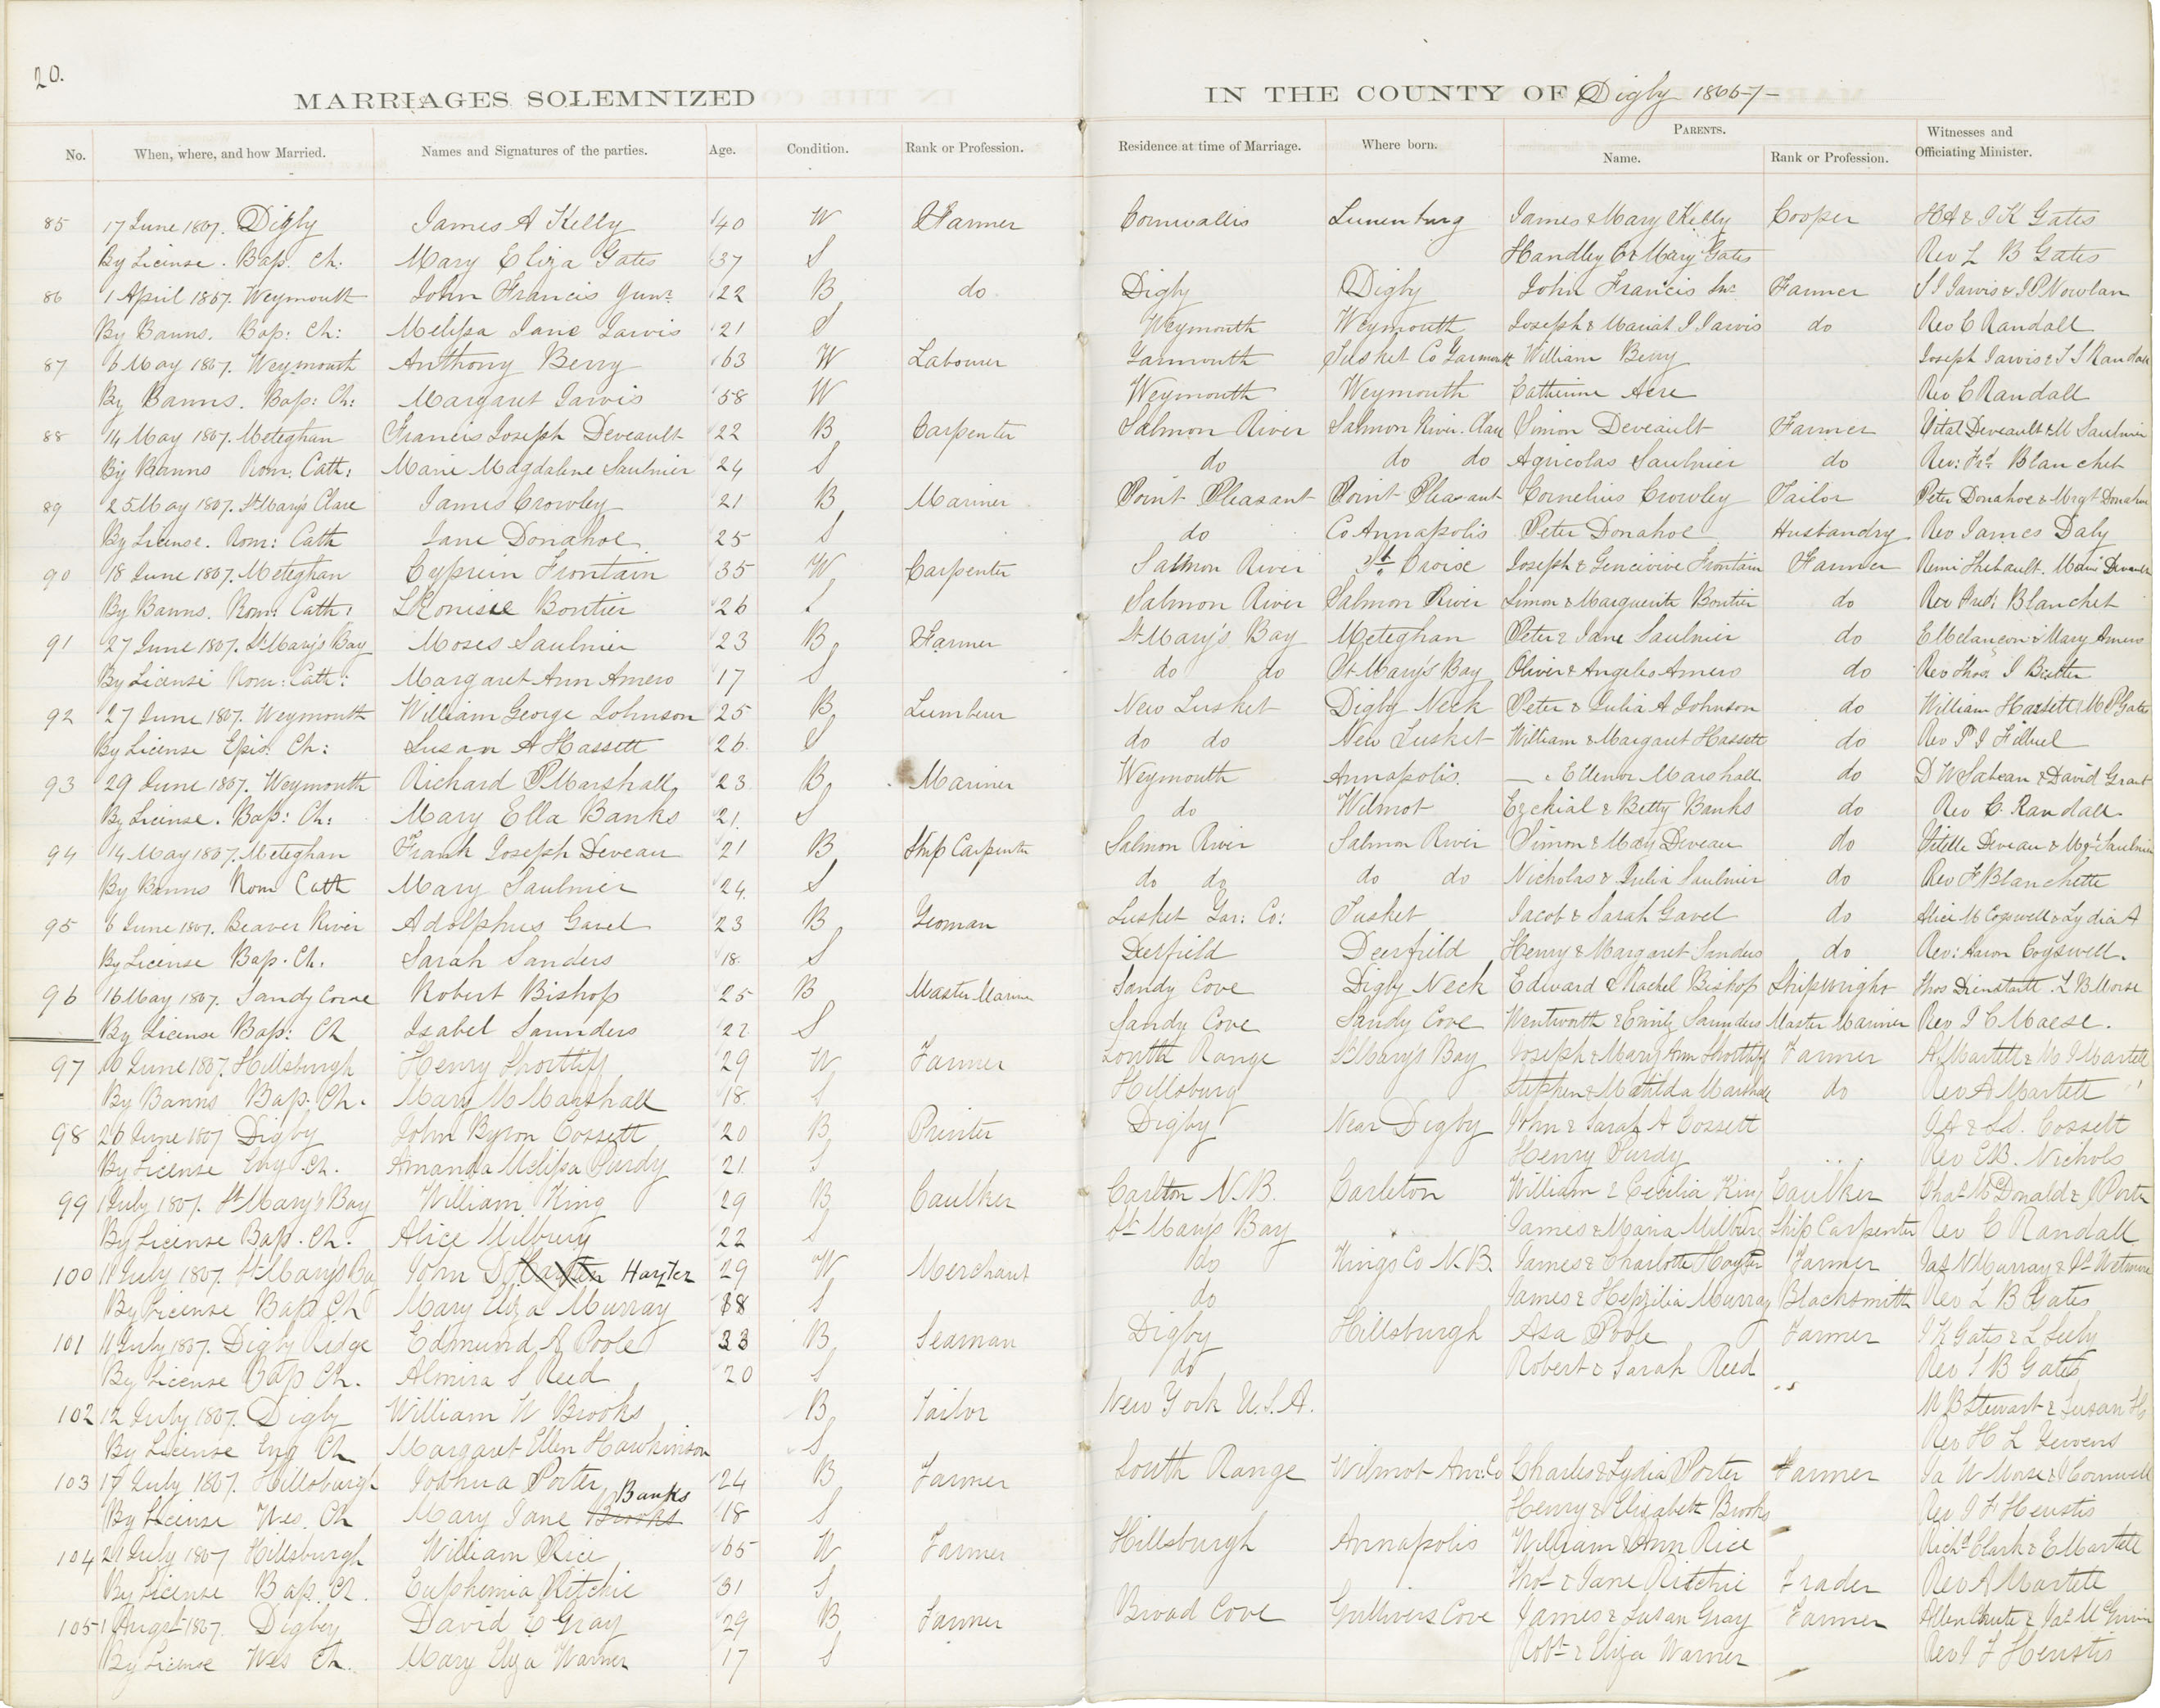 20.
MARRIAGES SOLEMNIZED IN THE COUNTY OF Digby 1866-7-
No. When, where, and how Married. Names and Signatures of the parties. Age. Condition. Rank or Profession. Residence at time of Marriage. Where born. PARENTS. Name. Rank or Profession. Witnesses and Officiating Minister.
85 17 June 1867. Digby James A Kelly 40 W Farmer Cornwallis Lunenburg James & Mary Kelly Cooper HA & I K Gates
By License. Bap. Ch: Mary Eliza Gates 37 S Handley C & Mary Gates Rev L B Gates
86 1 April 1867. Weymouth John Francis Junr 22 B do Digby Digby John Francis Snr Farmer S I Jarvis & J P Nowlan
By Banns. Bap: Ch: Melissa Jane Jarvis 21 S Weymouth Weymouth Joseph & Mariah I Jarvis do Rev C Randall
87 6 May 1867. Weymouth Anthony Berry 63 W Labourer Yarmouth Tusket Co Yarmouth William Berry Joseph Jarvis & T S Randall
By Banns. Bap: Ch: Margaret Jarvis 58 W Weymouth Weymouth Catherine Acre Rev C Randall
88 14 May 1867. Meteghan Francis Joseph Deveault 22 B Carpenter Salmon River Salmon River. Clare Simon Deveault Farmer Vital Deveault & M Saulnier
By Banns Rom: Cath: Marie Magdaline Saulnier 24 S do do do Agricolas Saulnier do Rev: Frd Blanchet
89 25 May 1867. St Mary's Clare James Crowley 21 B Mariner Point Pleasant Point Pleasant Cornelius Crowley Tailor Peter Donahoe & Mrgt Donahoe
By License. Rom: Cath Jane Donahoe 25 S do Co Annapolis Peter Donahoe Husbandry Rev James Daly
90 18 June 1867. Meteghan Cyprien Frontain 35 W Carpenter Salmon River St Croise Joseph & Genevive Frontain Farmer Remi Thibault. Marie Deveau
By Banns. Rom: Cath: Bontier 26 S Salmon River Salmon River Simon & Marguerite Bontier do Rev Fred: Blanchet
91 27 June 1867. St Mary's Bay Moses Saulnier 23 B Farmer St Mary's Bay Meteghan Peter & Jane Saulnier do E Melancon & Mary Amero
By License Rom: Cath: Margaret Ann Amero 17 S do do St Mary's Bay Oliver & Angeles Amero do Rev Thos I Butler
92 27 June 1867. Weymouth William George Johnson 25 B Lumberer New Tusket Digby Neck Peter & Julia A Johnson do William Hassett & M P Gates
By License Epis: Ch: Susan A Hassett 26 S do do New Tusket William & Margaret Hassett do Rev P I Filleul
93 29 June 1867. Weymouth Richard P Marshall 23 B Mariner Weymouth Annapolis. — Ellenor Marshall do D W Sabean & David Grant
By License. Bap: Ch: Mary Ella Banks 21. S do Wilmot Ezekial & Betty Banks do Rev C. Randall
94 14 May 1867. Meteghan Frank Joseph Deveau 21 B Ship Carpenter Salmon River Salmon River Simon & Mary Deveau do Vitelle Deveau & Mgt Saulnier
By Banns Rom Cath Mary Saulnier 24. S do do do do Nicholas & Julia Saulnier do Rev F Blanchette
95 6 June 1867. Beaver River Adolphus Gavel 23 B Yeoman Tusket Yar: Co: Tusket Jacob & Sarah Gavel do Alice M Cogswell & Lydia A
By License Bap. Ch. Sarah Sanders 18 S Deerfield Deerfield Henry & Margaret Sanders do Rev: Aaron Cogswell.
96 16 May 1867. Sandy Cove Robert Bishop 25 B Master Mariner Sandy Cove Digby Neck Edward & Rachel Bishop Shipwright Thos Dienstadt. L B Morse
By License Bap: Ch Isabel Saunders 22 S Sandy Cove Sandy Cove Wentworth & Emily Saunders Master Mariner Rev J C Morse.
97 10 June 1867. Hillsburgh Henry Shortliff 29 W Farmer South Range St Mary's Bay Joseph & Mary Ann Shortliff Farmer A Martell & M J Martell
By Banns Bap. Ch. Mary M Marshall 18 S Hillsburg Stephen & Matilda Marshall do Rev A Martell
98 26 June 1867 Digby John Byron Cossett 20 B Printer Digby Near Digby John & Sarah A Cossett Cossett
By License Eng. Ch. Amanda Melissa Purdy 21 S Henry Purdy Rev E B. Nichols
99 1 July 1867. St Mary's Bay William King 29 B Caulker Carlton N.B. Carleton William & Cecilia King Caulker Chas McDonald & J Porter
By License Bap. Ch. Alice Milbury 22 S St Mary's Bay James & Maria Milbury Ship Carpenter Rev C Randall
100 11 July 1867. St Mary's Bay John D Hayter 29 W Merchant do Kings Co N.B. James & Charlotte Hayter Farmer Jas N Murray & Wetmore
By License Bap Ch Mary Eliza Murray 18 S do James & Hepzibia Murray Blacksmith Rev L B Gates
101 11 July 1867. Digby Ridge Edmund A Poole 23 B Seaman Digby Hillsburgh Asa Poole Farmer J K Gates & L July
By License Bap Ch. Almira S Reed 20 S do Robert & Sarah Reed Rev L B Gates
102 12 July 1867. Digby William W Brooks B Tailor New York U.S.A. W B Stewart & Susan H
By License Eng Ch Margaret Ellen Hawkinson S Rev H L Jewens
103 17 July 1867. Hillsburgh Joshua Porter 24 B Farmer South Range Wilmot Ann: Co Charles & Lydia Porter Farmer Ja W Morse & Cornwell
By License Wes. Ch Mary Jane Brooks Banks 18 S Henry & Elizabeth Brooks Rev J F Heustis
104 29 July 1867 Hillsburgh William Rice 65 W Farmer Hillsburgh Annapolis William & Ann Rice Richd Clark & E Martell
By License Bap. Ch. Euphemia Ritchie 31 S Thos & Jane Ritchie Trader Rev A Martell
105 1 Augst 1867. Digby David C Gray 29 B Farmer Broad Cove Gullivers Cove James & Susan Gray Farmer Allen Chute &
By License Wes Ch. Mary Eliza Warner 17 S Robt & Eliza Warner Rev J F Heustis